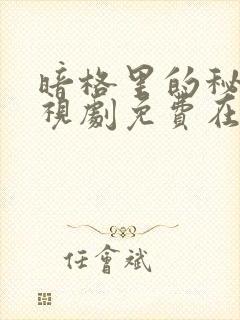 暗格里的秘
視劇免費在
任會斌